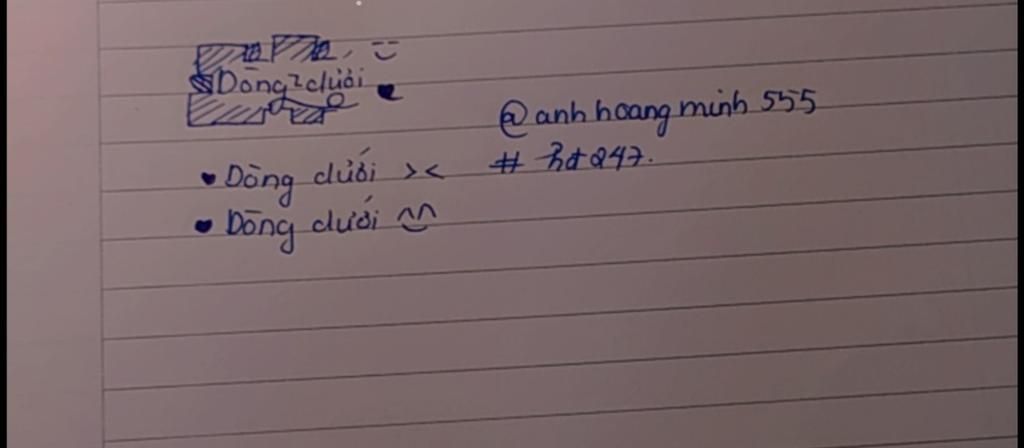 Dòng dưới
@anhhoangminh555
• Dòng dưới ><
# hd247.
• Dòng dưới ^^